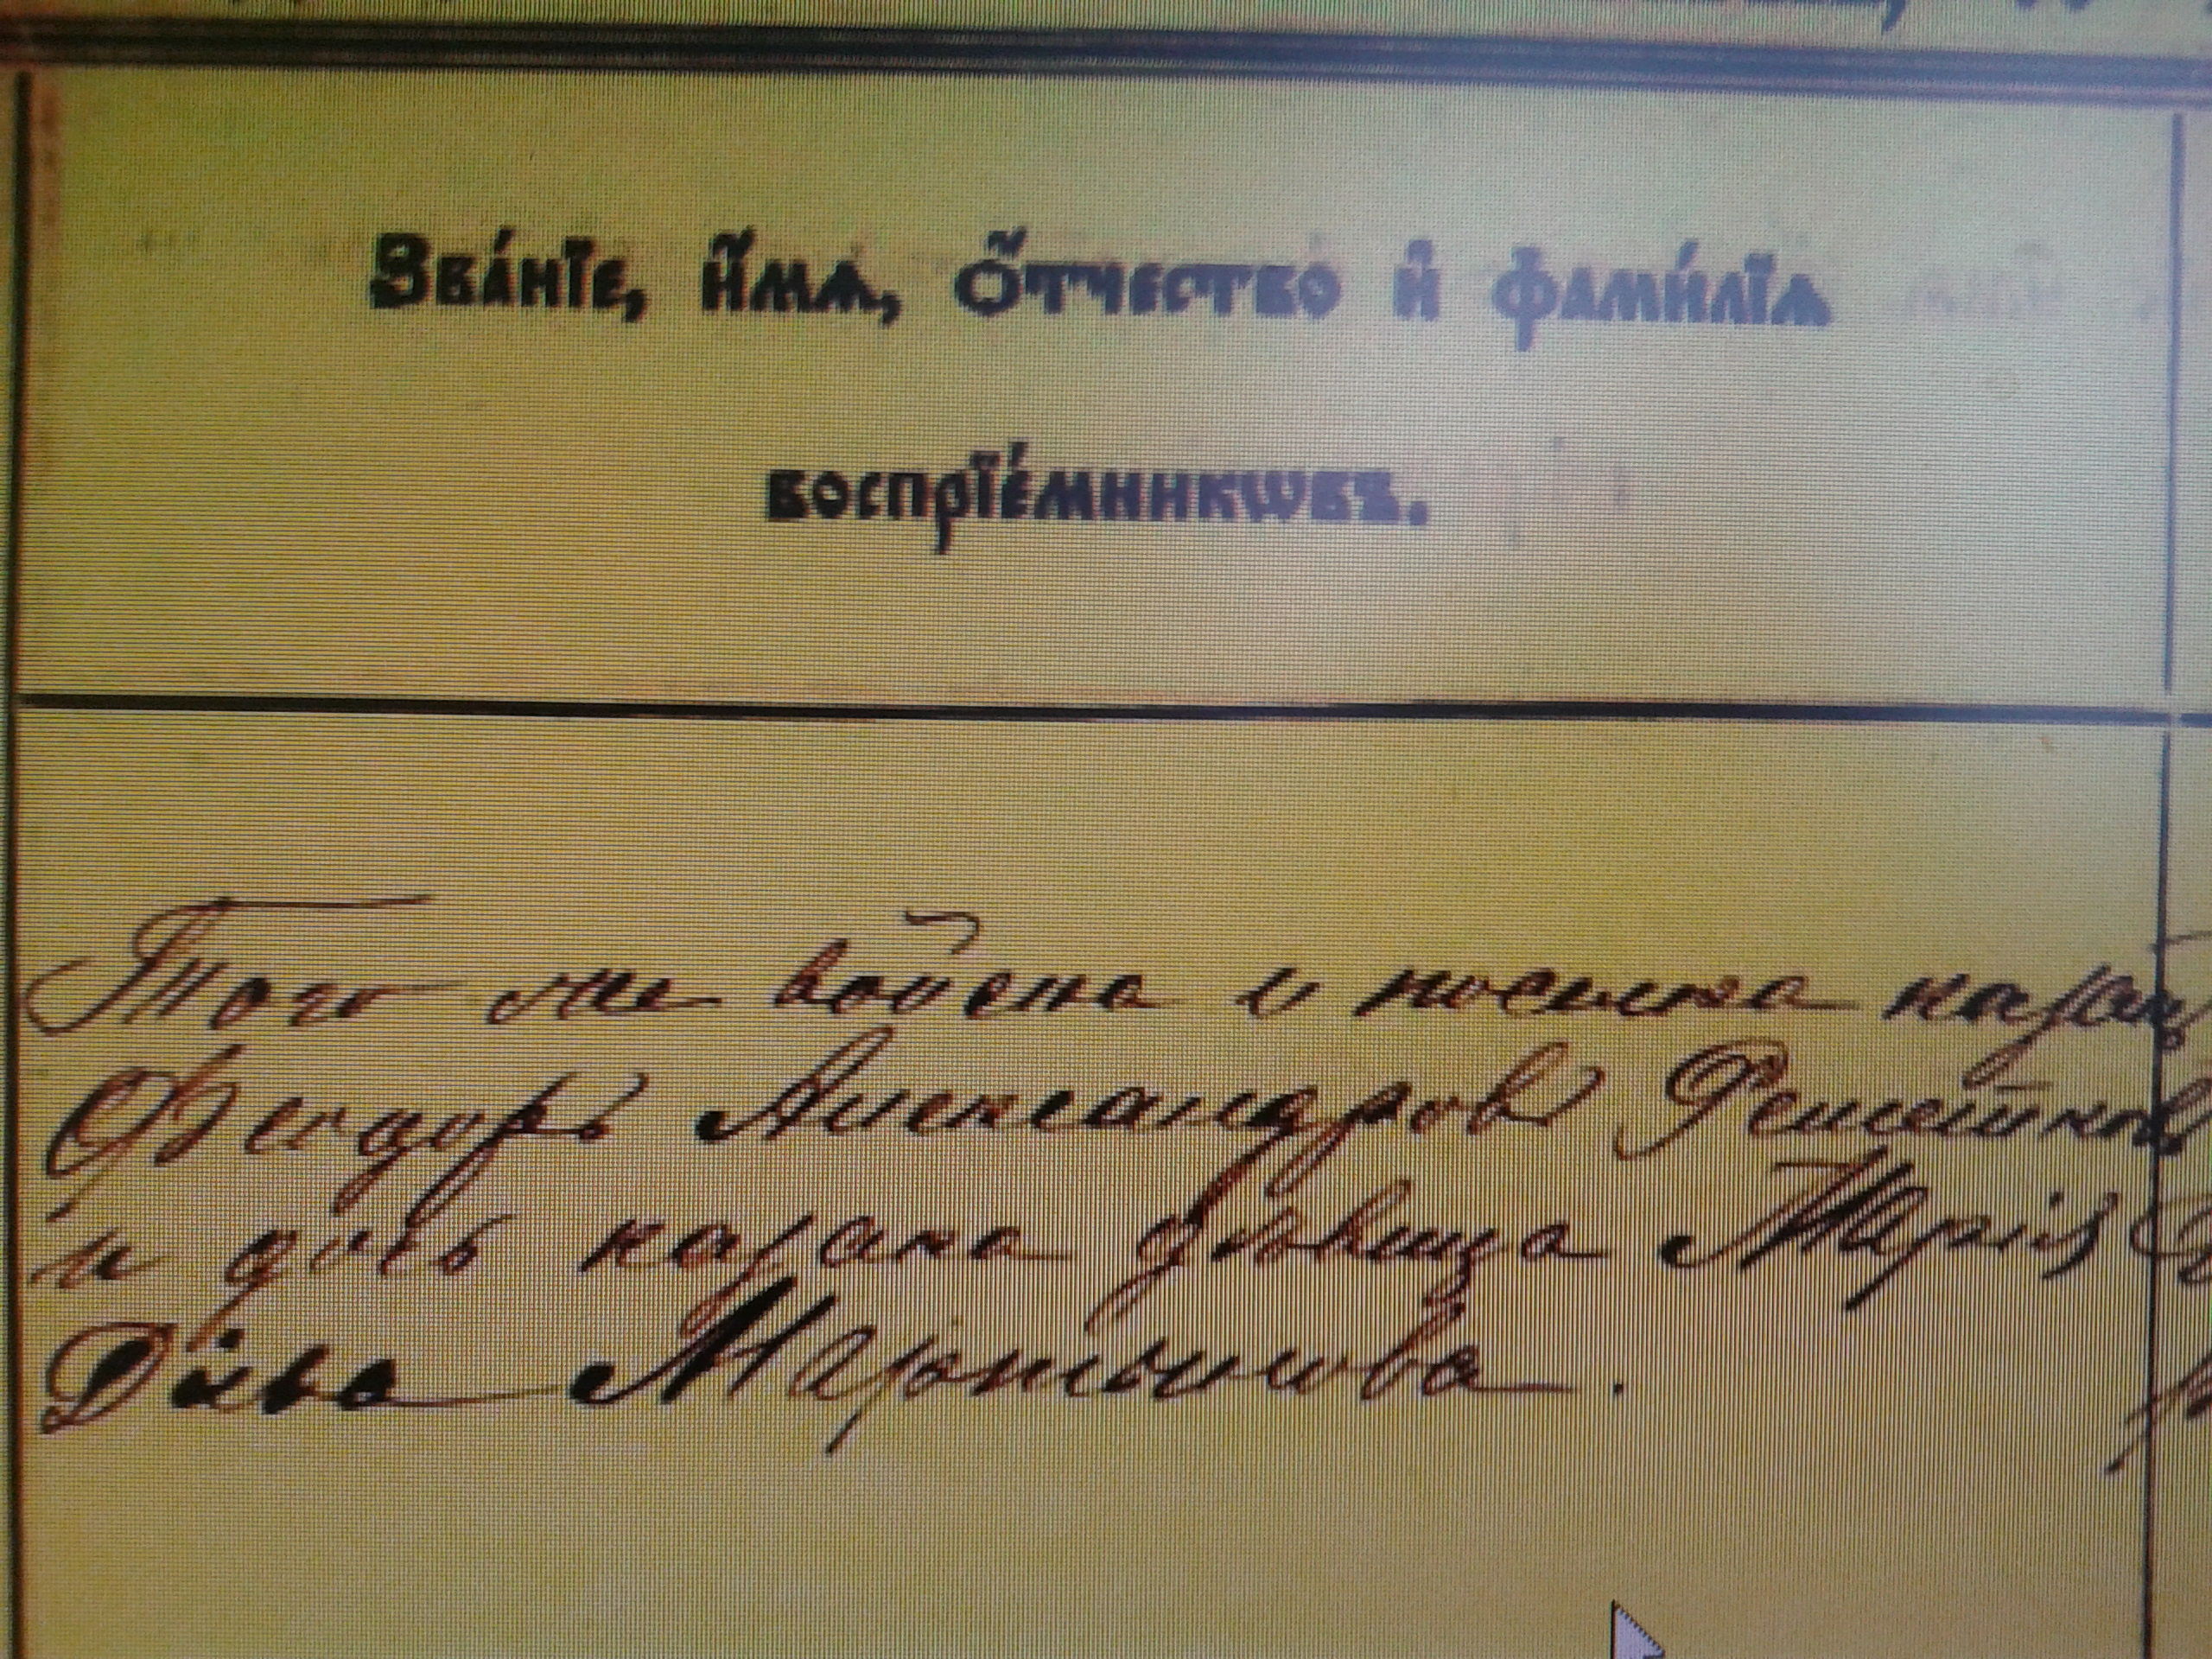 Зва́нїе, и҆́мѧ, ѻ҆́тчество и҆ фами́лїѧ
воспрїе́мникѡвъ.
Того же войска и поселка казакъ
Ѳеодоръ Александровъ Решетковъ
и дочь казака девица Марія
Мартынова.